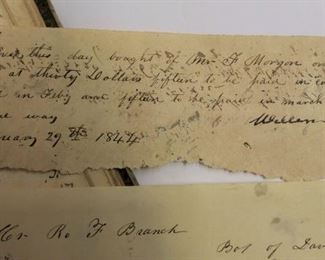 this day bought of Mr F Morgan
at thirty Dollars fifteen to be paid in
in Feby and fifteen to be paid in march
way
29 1844
Mr Ro F Branch
Bot of Dav